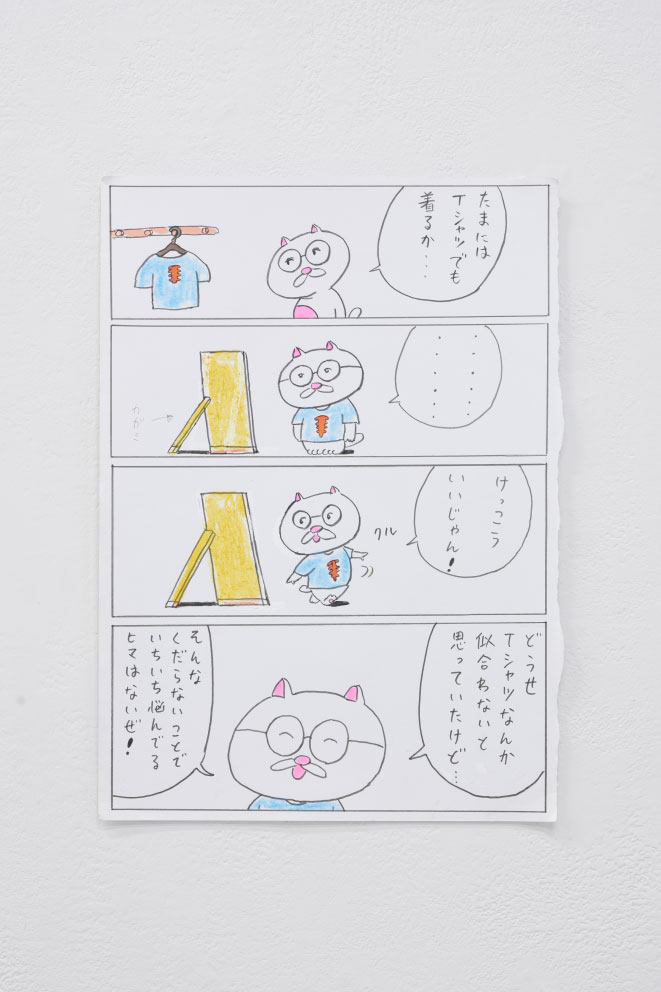 たまには
Tシャツでも
着るか・・・
・・・・・・
・・・・・・
かがみ
けっこう
いいじゃん!
クル
どうせ
Tシャツなんか
似合わないと
思っていたけど…
そんな
くだらないことで
いちいち悩んでる
ヒマはないぜ!